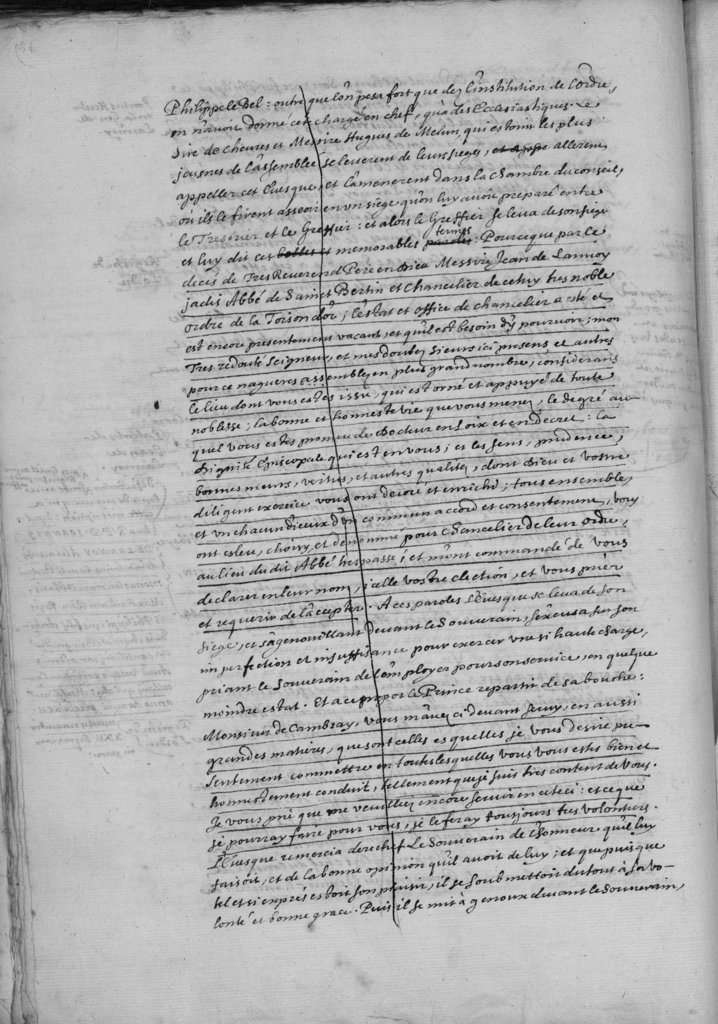 Philippe le Bel : outre que l'on pesa fort que dez l'institution de l'ordre,
on n'avoit donné cete charge en chef, qu'à des Ecclesiastiques. Le
Sire de Chevres et Messire Hugues de Melun, qui estoint les plus
jeusnes de l'assemblée, se leverent de leurs sieges, allerent
appeller cet Evesque, et l'amenerent dans la Chambre du conseil,
où ils le firent asseoir en un siege qu'on luy avoit preparé entre
le Tresorier et le Greffier : et alors le Greffier se leva de son siege
et luy dit ces belles et memorables paroles termes : Pource que par le
deces de Tres Reverend Pere en Dieu Messire Jean de Lannoy
jadis Abbé de Sainct Bertin et Chancelier de cestuy tres noble
ordre de la Toison d'or ; l'estat et office de chancelier a esté et
est encore presentement vacant, et qu'il est besoin d'y pourvoir ; mon
Tres redouté Seigneur, et mes doubtez Sieurs ici presens et autres
pour ce nagueres assemblez en plus grand nombre, considerans
le lieu dont vous estes issu, qui est orné et appuyé de toute
noblesse ; la bonne et honneste vie que vous menez, le degré au
quel vous estes promeu de Docteur en Loix et en Decret : la
Dignité Episcopale qui est en vous ; et les sens, prudence,
bonnes meurs, vertus, et autres qualitez, dont Dieu et vostre
diligent exercice vous ont decoré et enrichi ; tous ensemble,
et un chacun d'ieux d'un commun accord et consentement, vous
ont esleu, choisy, et denommé pour Chancelier de leur ordre,
au lieu du dit Abbé trespassé ; et m'ont commandé de vous
declarer en leur nom, icelle vostre election, et vous prier
et requerir de l'accepter. A ces paroles l'Evesque se leva de son
siege, et s'agenouillant devant le Souverain, s'excusa sur son
imperfection et insuffisance pour exercer une si haute charge,
priant le Souverain de l'employer pour son service, en quelque
moindre estat. Et a ce propos le Prince repartit de sa bouche :
Monsieur de Cambray, vous m'avez ci devant servy, en aussi
grandes matieres, que sont celles esquelles je vous desire pre-
sentement commettre en toutes lesquelles vous vous estes bien et
honnestement conduit, tellement que je suis tres content de vous.
Je vous prie que me veuillez encore servir en ceteci : et ce que
je pourray faire pour vous, je le feray tousjours tres volontiers.
L'Evesque remercia derechef le Souverain de l'honneur qu'il luy
faisoit, et de la bonne opinion qu'il avoit de luy ; et que puis que
tel et si exprés estoit son plaisir, il se soubmettoit du tout à sa vo-
lonté et bonne grace. Puis il se mit à genoux devant le Souverain,